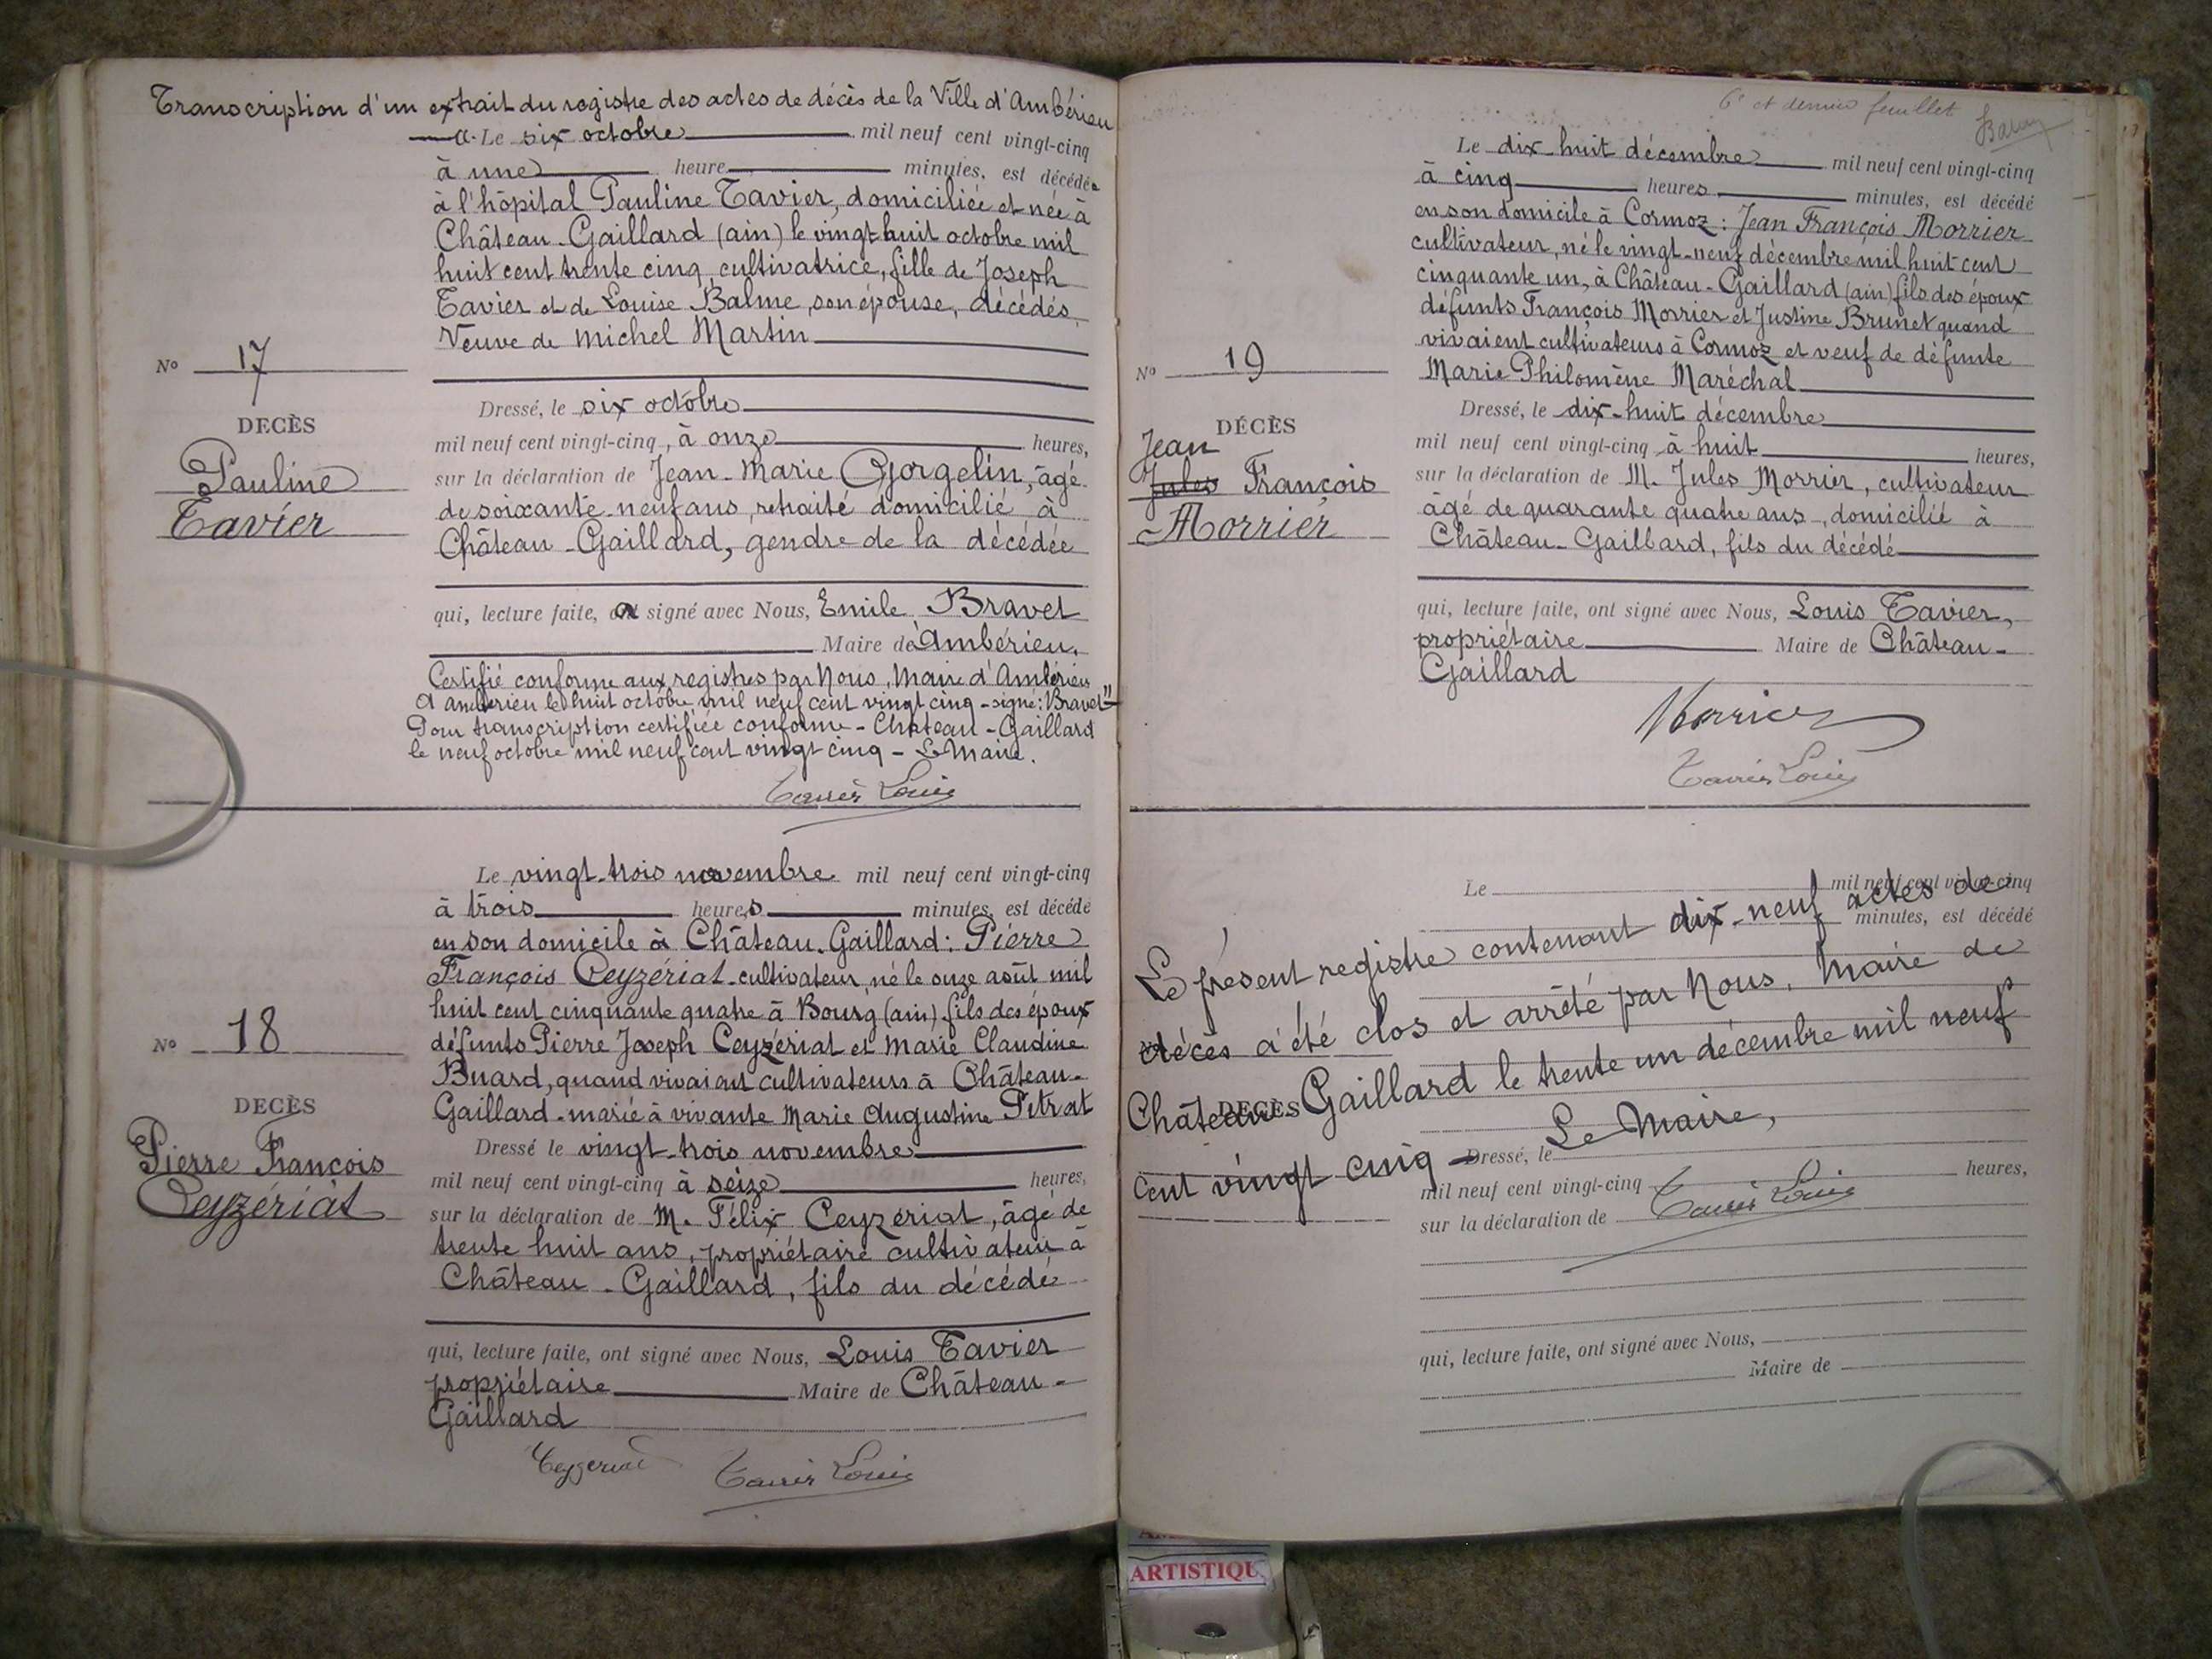 Transcription d'un extrait du registre des actes de décès de la Ville d'Ambérieu
Le six octobre mil neuf cent vingt-cinq
à une heure minutes, est décédée
à l'hôpital Pauline Tavier, domiciliée et née à
Château-Gaillard (ain) le vingt huit octobre mil
huit cent trente cinq, cultivatrice, fille de Joseph
Tavier et de Louise Balme, son épouse, décédés,
Veuve de Michel Martin
No 17
DECÈS
Pauline
Tavier
Dressé, le six octobre
mil neuf cent vingt-cinq, à onze heures,
sur la déclaration de Jean-Marie Gorgelin, âgé
de soixante-neuf ans, retraité domicilié à
Château-Gaillard, gendre de la décédée
qui, lecture faite, a signé avec Nous, Emile Bravet
Maire de Ambérieu.
Certifié conforme aux registres par Nous, Maire d'Ambérieu
A ambérieu le huit octobre mil neuf cent vingt cinq - signé: Bravet"
Pour transcription certifiée conforme - Château-Gaillard
le neuf octobre mil neuf cent vingt cinq - Le Maire.
Tavier Louis
Le vingt-trois novembre mil neuf cent vingt-cinq
à trois heures minutes, est décédé
en son domicile à Château-Gaillard: Pierre
François Ceyzériat cultivateur, né le onze août mil
huit cent cinquante quatre à Bourg (ain) fils des époux
défunts Pierre Joseph Ceyzériat et Marie Claudine
Buard, quand vivaient cultivateurs à Château-
Gaillard - marié à vivante Marie Augustine Pitrat
No 18
DECÈS
Pierre François
Ceyzériat
Dressé le vingt-trois novembre
mil neuf cent vingt-cinq à seize heures,
sur la déclaration de M. Félix Ceyzériat, âgé de
trente huit ans, propriétaire cultivateur à
Château-Gaillard, fils du décédé
qui, lecture faite, ont signé avec Nous, Louis Tavier
propriétaire Maire de Château-
Gaillard
Ceyzeriat Tavier Louis
6e et dernier feuillet
Le dix-huit décembre mil neuf cent vingt-cinq
à cinq heures minutes, est décédé
en son domicile à Cormoz: Jean François Morrier
cultivateur, né le vingt-neuf décembre mil huit cent
cinquante un, à Château-Gaillard (ain) fils des époux
défunts François Morrier et Justine Brunet quand
vivaient cultivateurs à Cormoz et veuf de défunte
Marie Philomène Maréchal
No 19
DÉCÈS
Jean
Jules François
Morrier
Dressé, le dix-huit décembre
mil neuf cent vingt-cinq à huit heures,
sur la déclaration de M. Jules Morrier, cultivateur
âgé de quarante quatre ans, domicilié à
Château-Gaillard, fils du décédé
qui, lecture faite, ont signé avec Nous, Louis Tavier,
propriétaire Maire de Château-
Gaillard
Morrier
Tavier Louis
Le mil neuf cent vingt-cinq
minutes, est décédé
Le présent registre contenant dix-neuf actes de
décès a été clos et arrêté par Nous, Maire de
Château-Gaillard le trente un décembre mil neuf
cent vingt cinq - Le Maire,
DECÈS
Dressé, le
mil neuf cent vingt-cinq heures,
Tavier Louis
sur la déclaration de
qui, lecture faite, ont signé avec Nous,
Maire de
ARTISTIQU